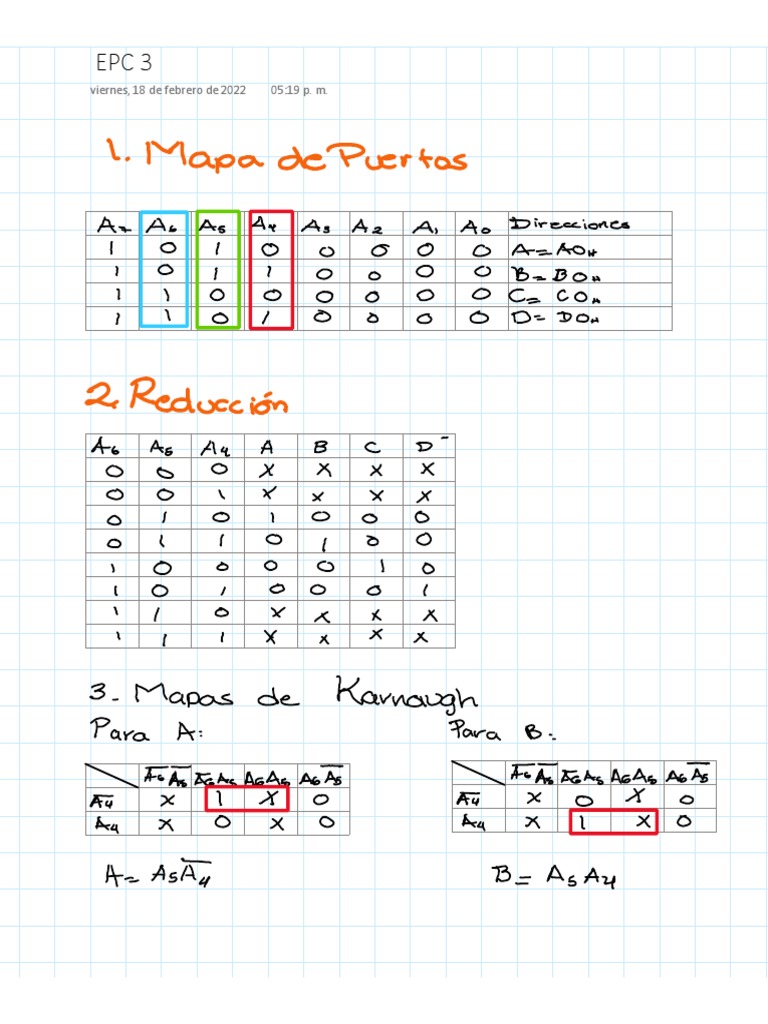 EPC 3
viernes, 18 de febrero de 2022 05:19 p. m.
1. Mapa de Puertos
A₇ A₆ A₅ A₄ A₃ A₂ A₁ A₀ Direcciones
1 0 1 0 0 0 0 0 A= A0H
1 0 1 1 0 0 0 0 B= B0H
1 1 0 0 0 0 0 0 C= C0H
1 1 0 1 0 0 0 0 D= D0H
2. Reducción
A₆ A₅ A₄ A B C D
0 0 0 X X X X
0 0 1 X X X X
0 1 0 1 0 0 0
0 1 1 0 1 0 0
1 0 0 0 0 1 0
1 0 1 0 0 0 1
1 1 0 X X X X
1 1 1 X X X X
3. Mapas de Karnaugh
Para A:
A̅₆A̅₅ A̅₆A₅ A₆A₅ A₆A̅₅
A̅₄ X 1 X 0
A₄ X 0 X 0
A= A₅A̅₄
Para B:
A̅₆A̅₅ A̅₆A₅ A₆A₅ A₆A̅₅
A̅₄ X 0 X 0
A₄ X 1 X 0
B= A₅A₄